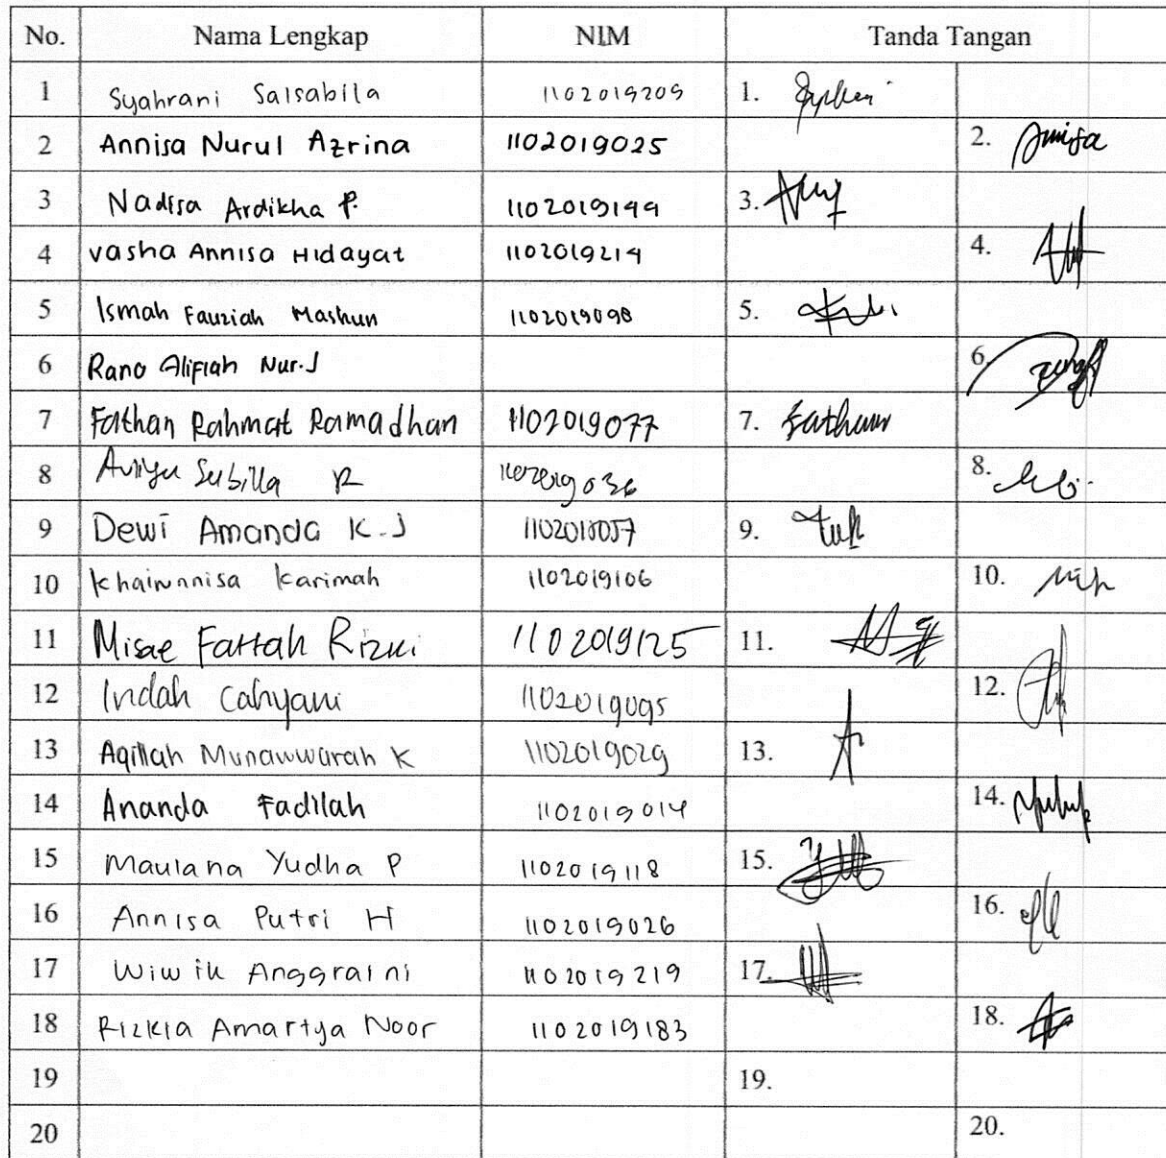 No. Nama Lengkap NIM Tanda Tangan
1 Syahrani Salsabila 1102019209 1.
2 Annisa Nurul Azrina 1102019025 2. Annisa
3 Nadisa Ardikha P. 1102019144 3.
4 vasha Annisa Hidayat 1102019214 4.
5 Ismah Fauziah Mashun 1102019098 5.
6 Rano Alifiah Nur.J 6.
7 Fathan Rahmat Ramadhan 1102019077 7. Fathan
8 Sabilla R 8.
9 Dewi Amanda K.J 1102018057 9.
10 Khairunnisa Karimah 1102019106 10.
11 Misae Fattah Rizki 1102019125 11.
12 Indah Cahyani 1102019095 12.
13 Aqillah Munawwarah K 1102019029 13.
14 Ananda Fadilah 1102019014 14.
15 Maulana Yudha P 1102019118 15.
16 Annisa Putri H 1102019026 16.
17 Wiwik Anggraini 1102019219 17.
18 Rizkia Amartya Noor 1102019183 18.
19 19.
20 20.